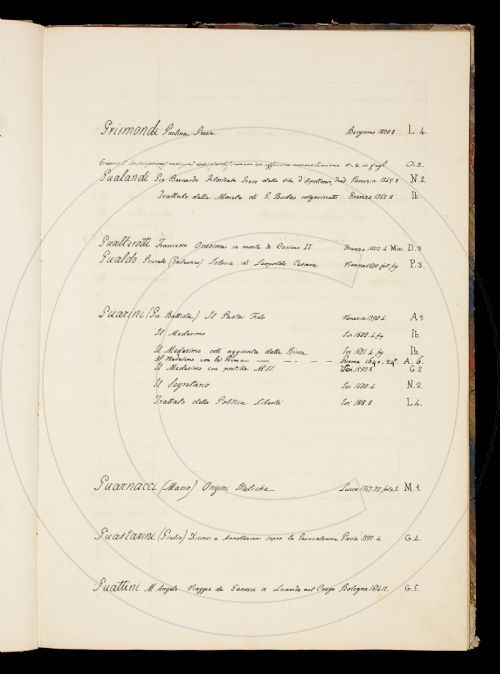 Grismondi Paolina Poesie Bergamo 1820 8 L. 4.
O. 2.
Gualandi Gio Bernardo Filostrato Greco della Vita d'Apollonio, Trad Venezia 1549. 8 N. 2
Trattato della Moneta di G. Budeo volgarizzato Firenze 1562. 8 Ib.
Gualterotti Francesco Orazione in morte di Cosimo II. Firenze 4 Mis. D. 3
Gualdo Priorato (Galeazzo) Istoria di Leopoldo Cesare Vienna 1670 fol. fig P. 3.
Guarini (Gio Battista) Il Pastor Fido Venezia 1590 4. A 3
Il Medesimo Ivi 1602. 4. fig Ib.
Il Medesimo coll aggiunta delle Rime Ivi 1621. 4. fig Ib.
Il Medesimo con le Rime Roma 1640. 24° A. 6.
Il Medesimo con postille M.SS. Ven. 8 G. 2
Il Segretario Ivi 1600. 4. N. 2.
Trattato della Politica Libertà Ivi 1818. 8 L. 4.
Guarnacci (Mario) Origini Italiche Lucca 1767. 72 fol. 3. M. 1
Guastavini (Giulio) Discorsi e Annotazioni sopra la Gerusalemme Pavia 1592. 4 G. 4.
Guattini M. Angelo Viaggio da Genova a Luanda nel Congo Bologna G. 5.